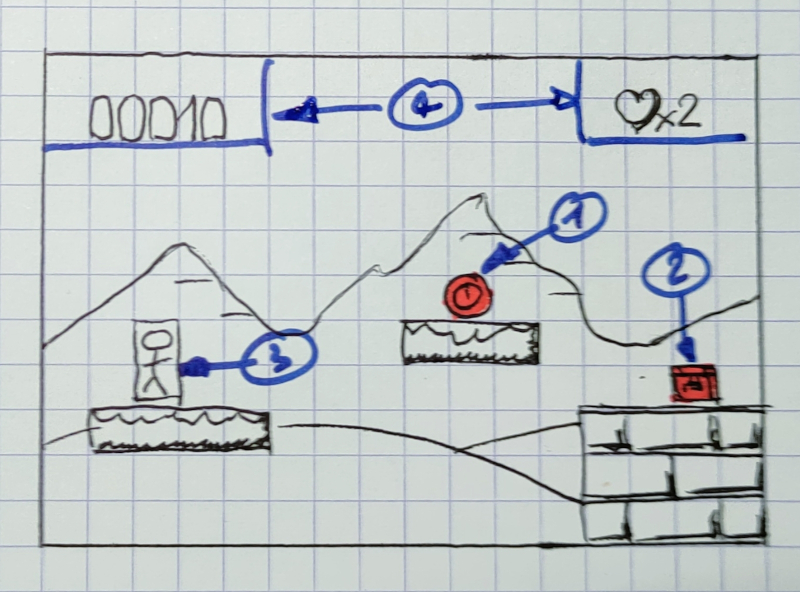 00010
4
♡x2
1
2
3